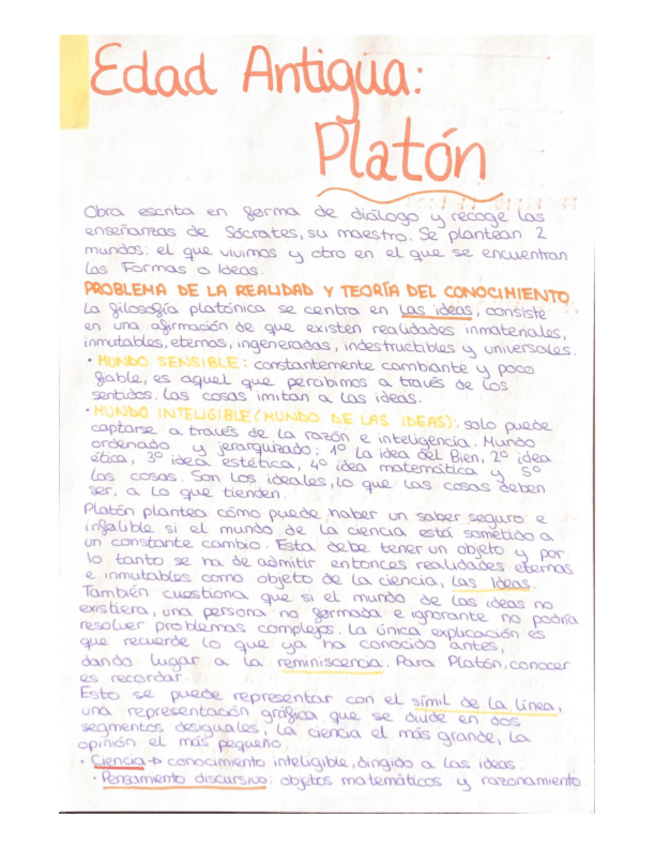 Edad Antigua:
Platón
Obra escrita en forma de diálogo y recoge las
enseñanzas de Sócrates, su maestro. Se plantean 2
mundos: el que vivimos y otro en el que se encuentran
las Formas o Ideas.
PROBLEMA DE LA REALIDAD Y TEORÍA DEL CONOCIMIENTO
La filosofía platónica se centra en las ideas, consiste
en una afirmación de que existen realidades inmateriales,
inmutables, eternas, ingeneradas, indestructibles y universales.
· MUNDO SENSIBLE: constantemente cambiante y poco
fiable, es aquel que percibimos a través de los
sentidos. Las cosas imitan a las ideas.
· MUNDO INTELIGIBLE (MUNDO DE LAS IDEAS): solo puede
captarse a través de la razón e inteligencia. Mundo
ordenado y jerarquizado: 1º La idea del Bien, 2º idea
ética, 3º idea estética, 4º idea matemática y 5º
las cosas. Son los ideales, lo que las cosas deben
ser, a lo que tienden.
Platón plantea cómo puede haber un saber seguro e
infalible si el mundo de la ciencia está sometido a
un constante cambio. Esta debe tener un objeto y por
lo tanto se ha de admitir entonces realidades eternas
e inmutables como objeto de la ciencia, las Ideas.
También cuestiona que si el mundo de las ideas no
existiera, una persona no formada e ignorante no podría
resolver problemas complejos. La única explicación es
que recuerde lo que ya ha conocido antes,
dando lugar a la reminiscencia. Para Platón, conocer
es recordar.
Esto se puede representar con el símil de la línea,
una representación gráfica que se divide en dos
segmentos desiguales, la ciencia el más grande, la
opinión el más pequeño.
· Ciencia → conocimiento inteligible, dirigido a las ideas.
· Pensamiento discursivo: objetos matemáticos y razonamiento